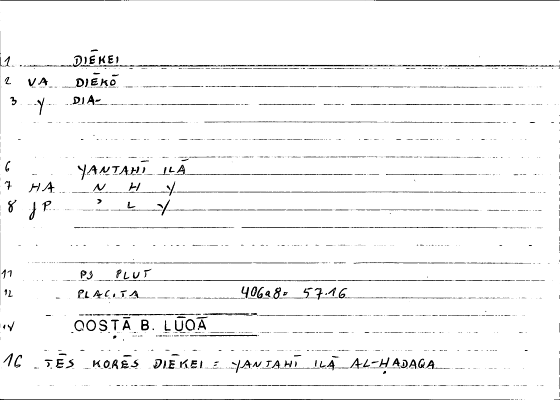 1 DIĒKEI
2 VA DIĒKŌ
3 Y DIA-
6 YANTAHĪ ILĀ
7 HA N H Y
8 JP ʾ L Y
11 PS PLUT
12 PLACITA 406a8 = 57.16
14 QOSṬĀ B. LŪQĀ
16 TĒS KORĒS DIĒKEI = YANTAHĪ ILĀ AL-ḤADAQA